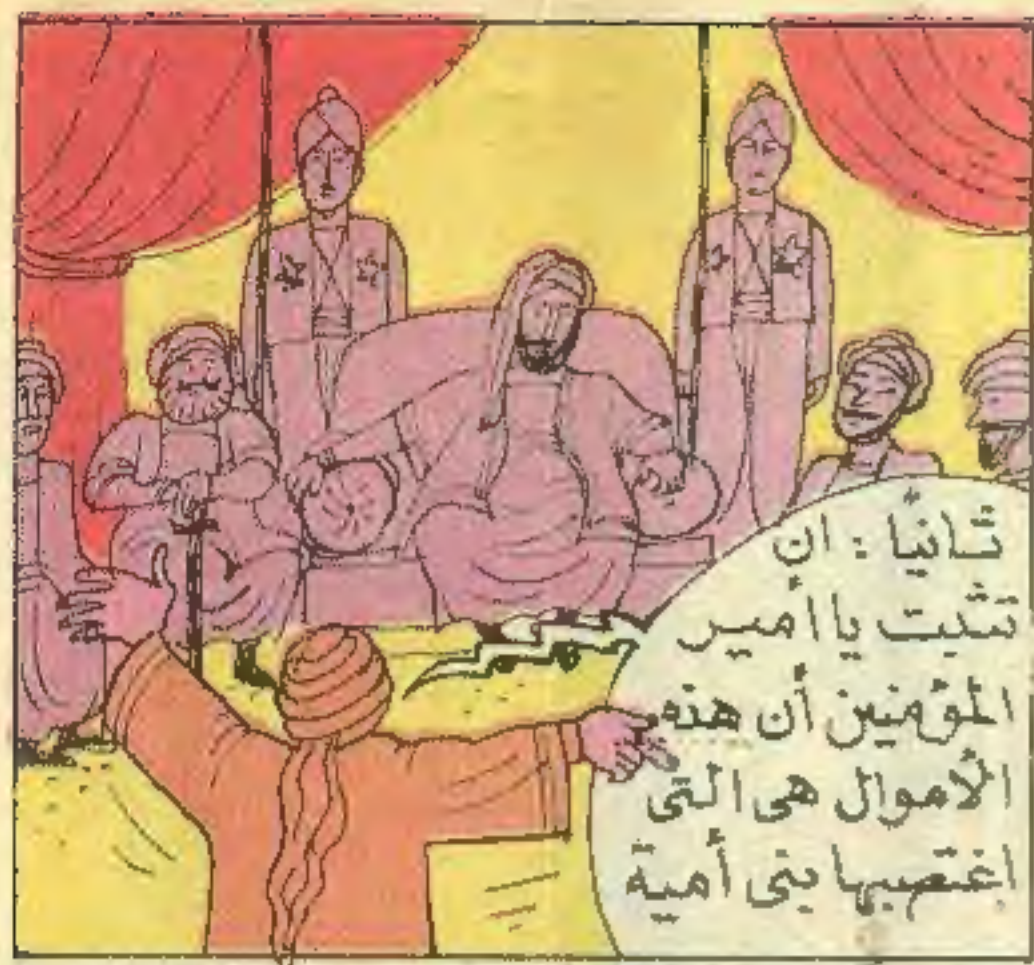 ثانيًا : ان
تثبت يا أمير
المؤمنين أن هذه
الأموال هى التى
اغتصبها بنى أمية